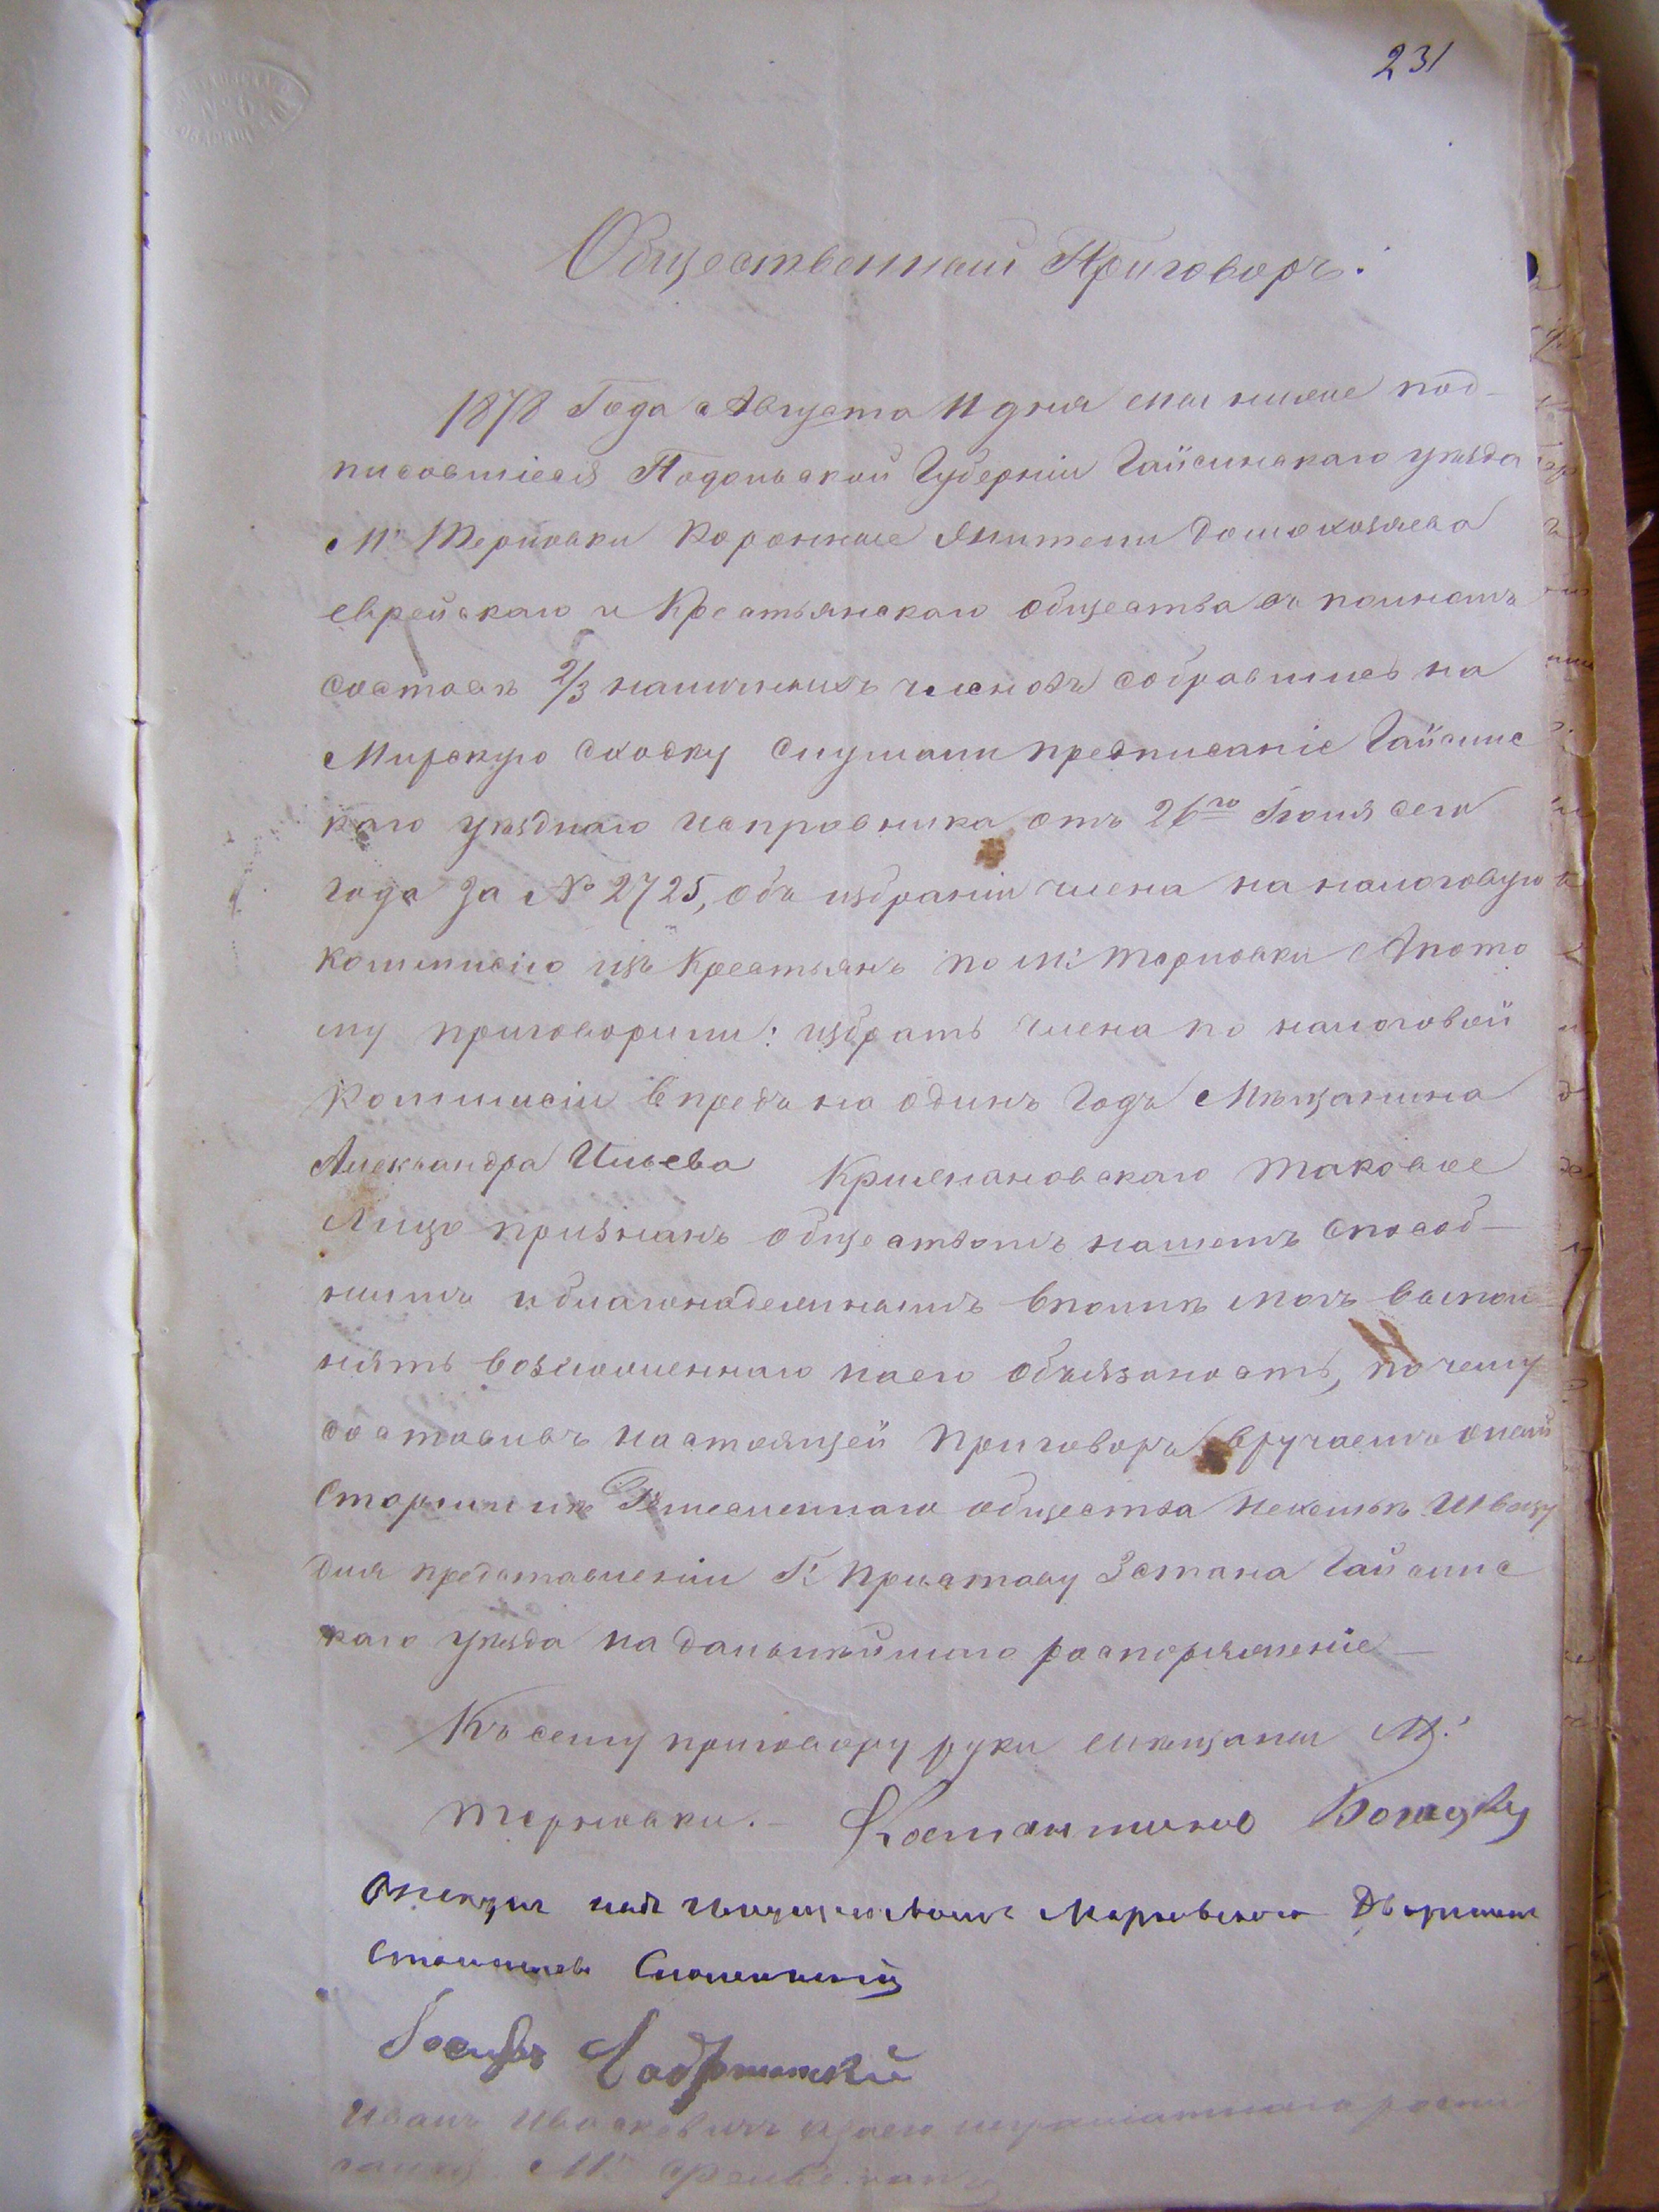 231
Общественный Приговоръ.
1878 Года Августа 11 дня мы ниже под-
писовшіеся Подольской Губерніи Гайсинскаго уѣзда
М. Терновки Коронные Жители домохозяева
еврейскаго и Крестьянскаго общества въ полномъ
составѣ 2/3 наличныхъ членовъ собравшись на
Мирскую сходку слушали предписаніе Гайсинс
каго уѣзднаго исправника отъ 26го Іюня сего
года за № 2725, объ избраніи члена на налоговую
коммисію изъ Крестьянъ по М. Терновки А пото
му приговорили: избрать члена по налоговой
Коммисіи впредъ на одинъ годъ Мѣщанина
Александра Ильева таковое
Лицо признанъ обществомъ нашемъ способ-
нымъ и благонадежнымъ вполнѣ можъ выпол
нять возложеннаго наего обязаность, почему
составивъ настоящей приговоръ вручаемъ оной
Старшинѣ общества
для представленіи Г. Приставу 3 стана Гайсинс
каго уѣзда на дальнѣйшаго распоряженіе —
Къ сему приговору руки мѣщаны М.
Терновки. — Костантинъ
надъ Дворянинъ
Иванъ
М.